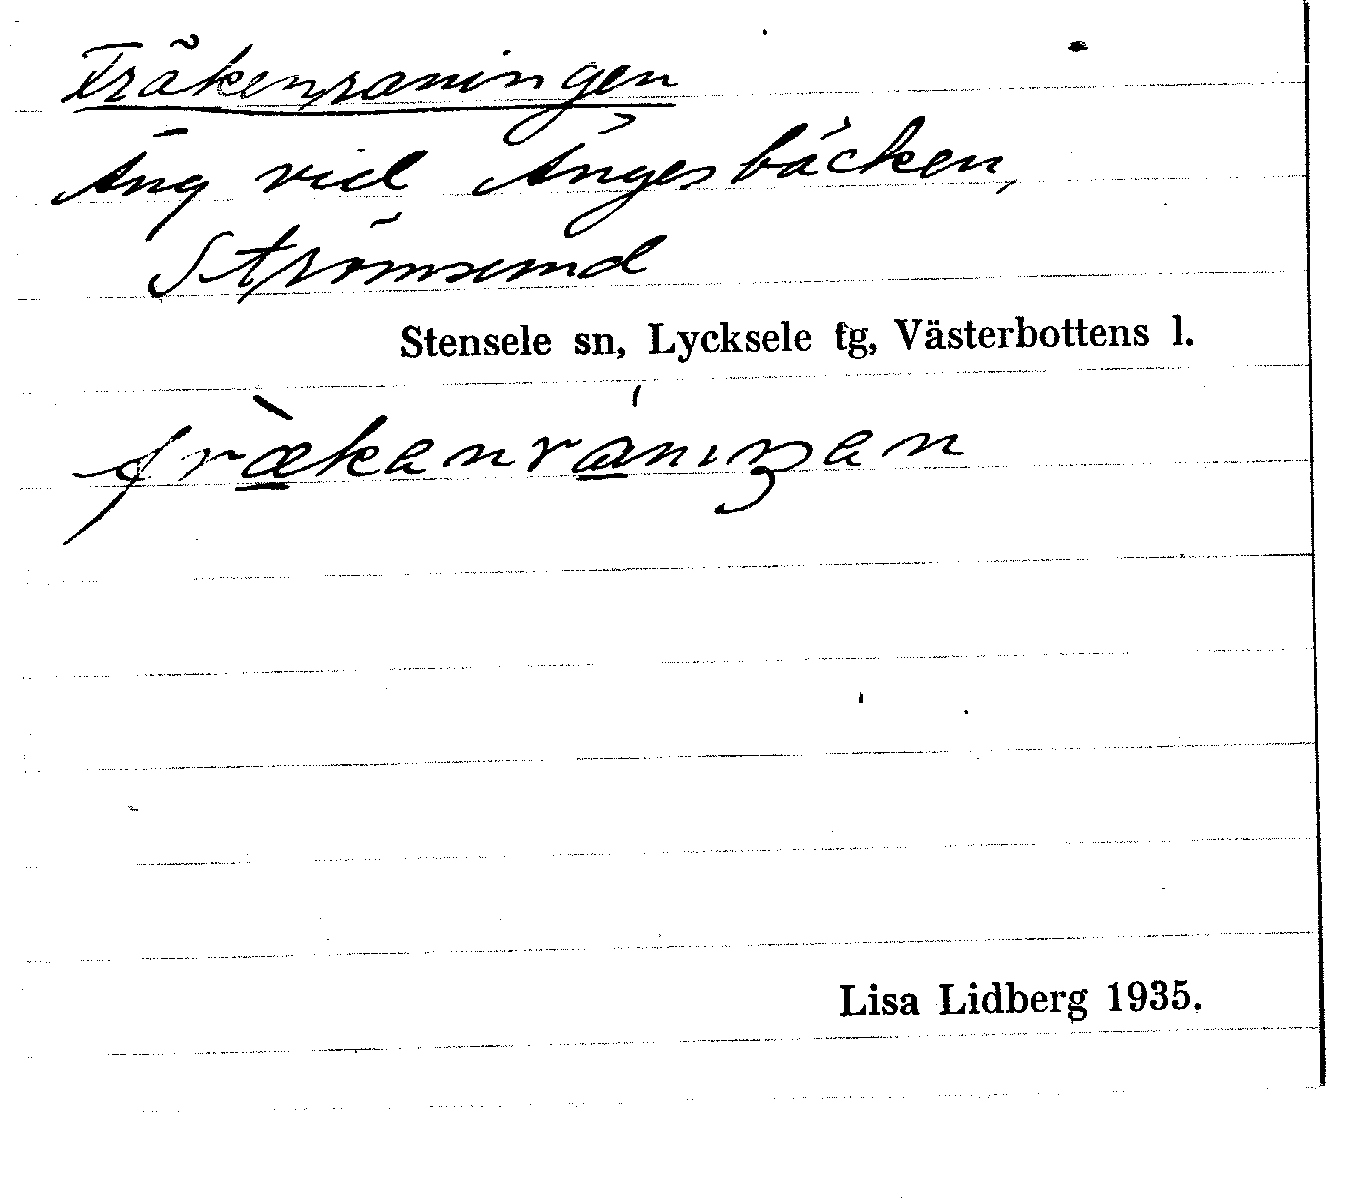 Fräkenraningen
Äng vid Ängesbäcken,
Strömsund
Stensele sn, Lycksele tg, Västerbottens l.
fræ̀kanrániŋan
Lisa Lidberg 1935.